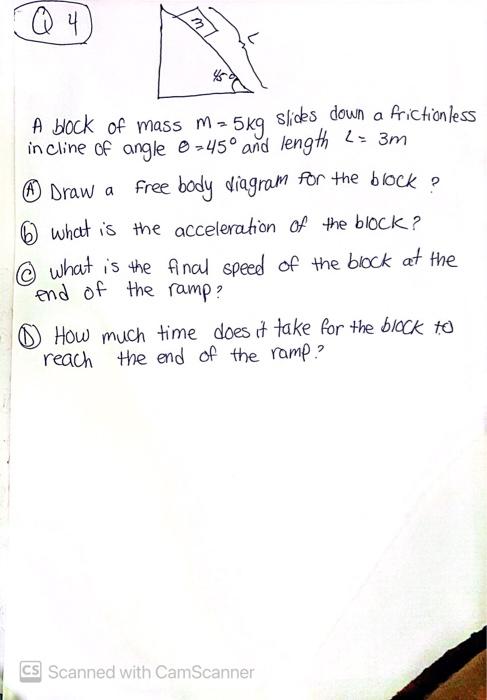 Q 4
m
L
45°
A block of mass m = 5kg slides down a frictionless
incline of angle θ = 45° and length L = 3m
(A) Draw a free body diagram for the block ?
(b) what is the acceleration of the block?
(C) what is the final speed of the block at the
end of the ramp?
(D) How much time does it take for the block to
reach the end of the ramp?
CS Scanned with CamScanner